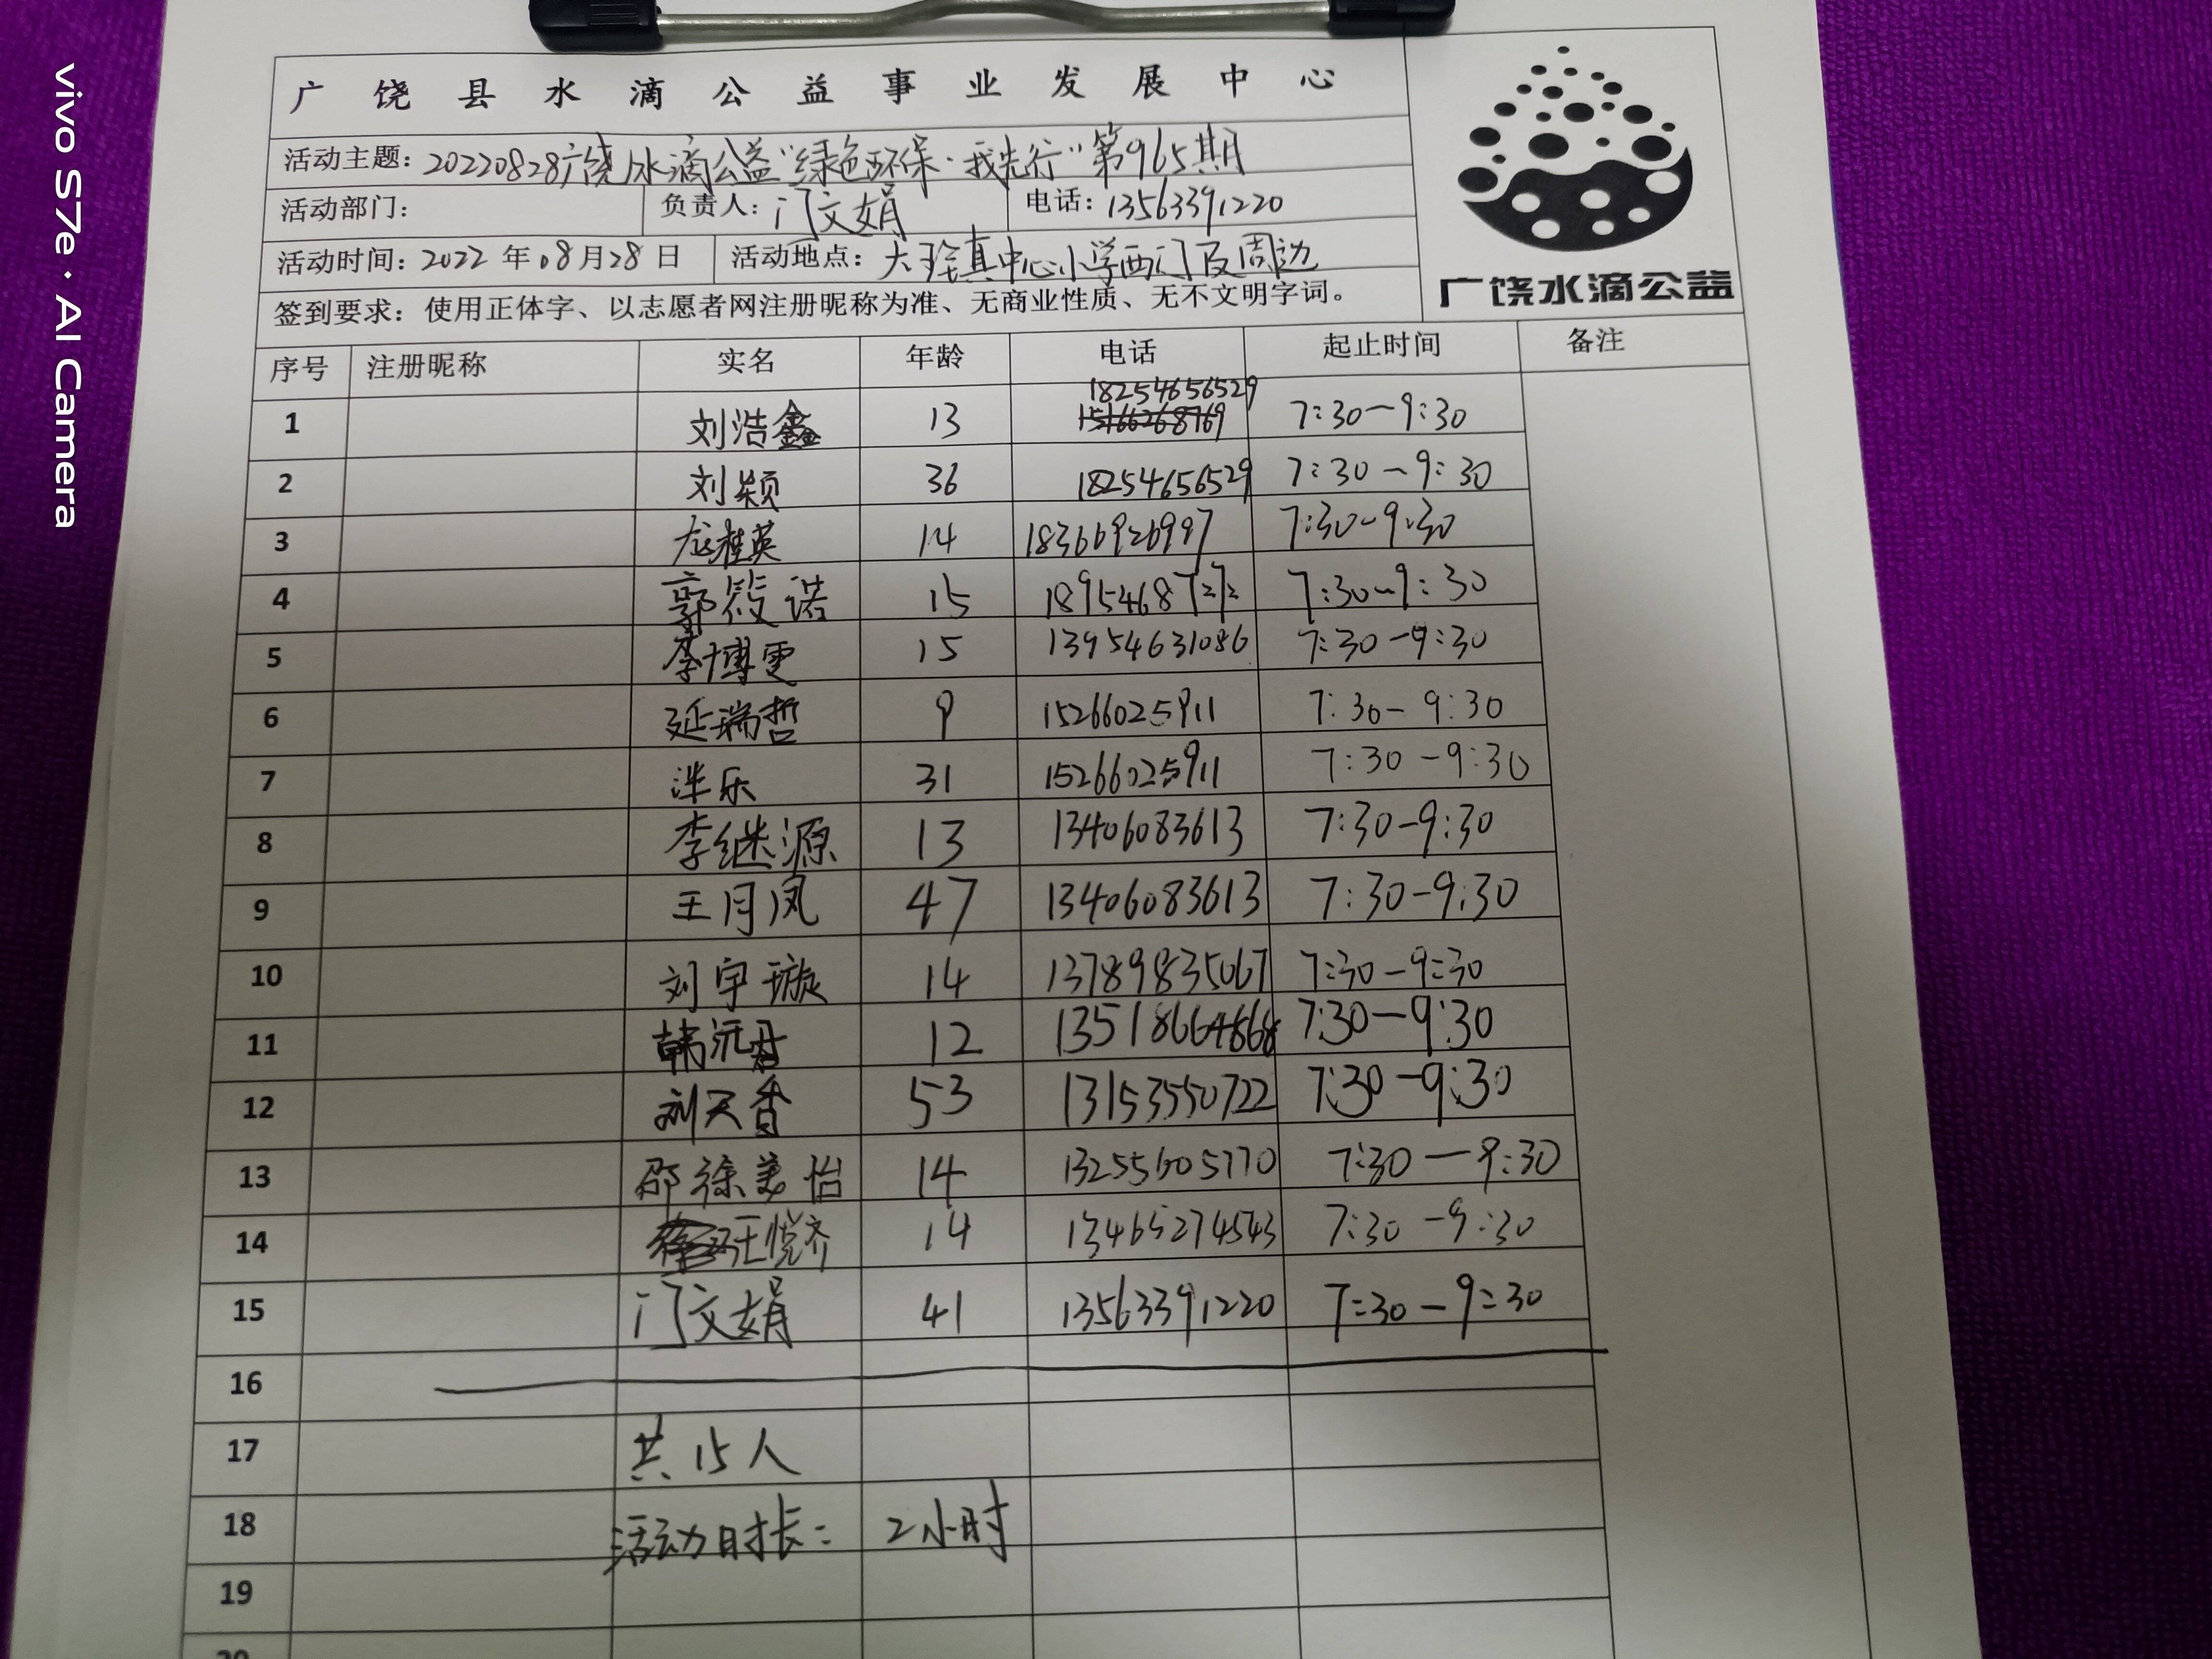 vivo S7e · AI Camera
广饶县水滴公益事业发展中心
活动主题：20220828广饶水滴公益“绿色环保·我先行”第965期
活动部门： 负责人：门文娟 电话：13563391220
活动时间：2022年08月28日 活动地点：大王镇中心小学西门及周边
广饶水滴公益
签到要求：使用正体字、以志愿者网注册昵称为准、无商业性质、无不文明字词。
序号 注册昵称 实名 年龄 电话 起止时间 备注
18254656529
1 刘浩鑫 13 7:30-9:30
2 刘颖 36 18254656529 7:30-9:30
3 龙桂英 14 7:30-9:30
4 郭筱诺 15 18954687272 7:30-9:30
5 李博雯 15 13954631086 7:30-9:30
6 延瑞哲 9 15266025911 7:30-9:30
7 31 15266025911 7:30-9:30
8 李继源 13 13406083613 7:30-9:30
9 王月凤 47 13406083613 7:30-9:30
10 刘宇璇 14 13789835067 7:30-9:30
11 韩沅君 12 13518664868 7:30-9:30
12 刘天香 53 13153550722 7:30-9:30
13 邵徐美怡 14 13255605770 7:30-9:30
14 王悦齐 14 13465274543 7:30-9:30
15 门文娟 41 13563391220 7:30-9:30
16
17 共15人
18 活动时长：2小时
19
20